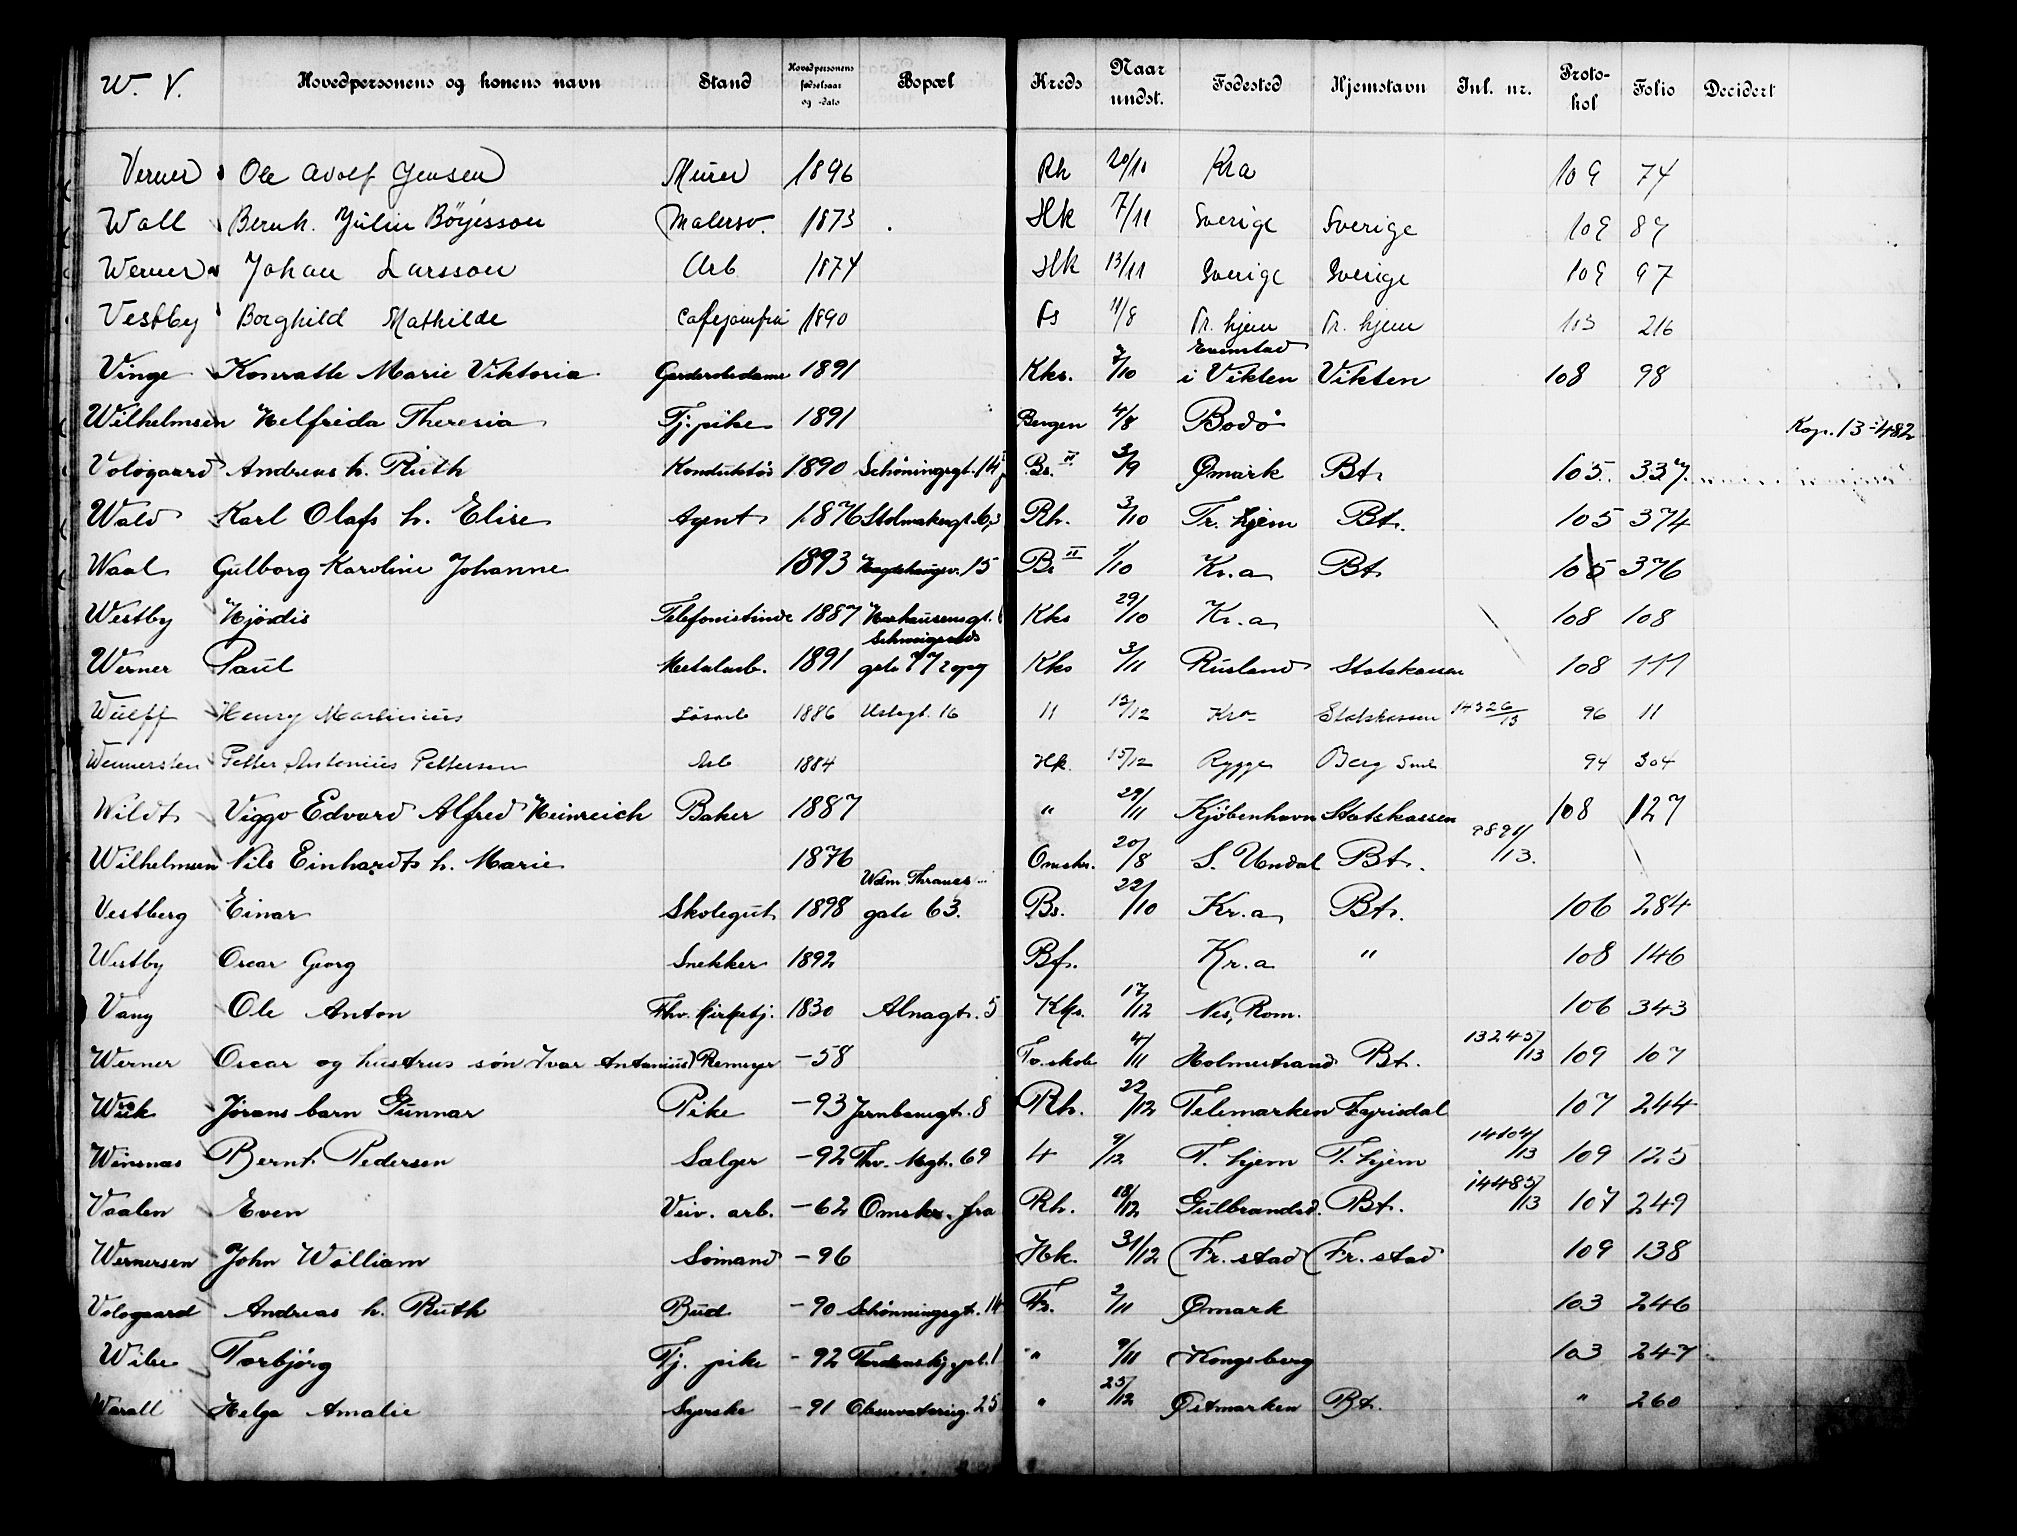 W. V. Hovedpersonens og konens navn Stand Hovedpersonens fødselsaar og -dato Bopæl Kreds Naar undst. Fødested Hjemstavn Inl. nr. Protokol Folio Decidert
Verner Ole Adolf Jensen Murer 1896 Rh 20/10 Kra 109 74
Wall Bernh. Julin Börjesson Malersv. 1873 Hk 7/11 Sverige Sverige 109 87
Werner Johan Larsson Arb 1874 Hk 13/11 Sverige Sverige 109 97
Vestby Borghild Mathilde Cafejomfru 1890 Fs 11/8 Tr. hjem Tr. hjem 103 216
Vinge Konratte Marie Viktoria Garderobedame 1891 Kks. 7/10 Evenstad i Vikten Vikten 108 98
Wilhelmsen Helfrida Theresia Tj. pike 1891 Bergen 4/8 Bodø Kop. 13-482
Vologaard Andreas h. Ruth Konduktør 1890 Schöningsgt. 14 Bs. II 3/9 Ømark Bt. 105. 337.
Wald Karl Olafs h. Elise Agent 1876 Stolmakergt. 6 Rh. 3/10 Tr. hjem Bt. 105 374
Waal Gulborg Karoline Johanne 1893 15 Bs II 1/10 Kr.a Bt 105 376
Westby Hjördis Telefonistinde 1887 Kks 29/10 Kr.a 108 108
Werner Paul Metalarb. 1891 Schweigaards gate 77 opg Kks 3/11 Rusland Statskassen 108 111
Wulff Henry Martinius Løsarb 1886 Urtegt. 16 11 12/12 Kra Statskassen 14326/13 96 11
Wennersten Petter Antonius Pettersen Arb 1884 Hk. 15/12 Rygge Berg Sml 94 304
Wildt Viggo Edvard Alfred Heinreich Baker 1887 " 29/11 Kjøbenhavn Statskassen 108 127
Wilhelmsen Nils Einhardt h. Marie 1876 Omskr. 20/8 S. Undal Bt. 9891/13.
Vestberg Einar Skolegut 1898 Wdm. Thranes gate 63. Bs. 22/10 Kr.a Bt. 106 284
Westby Oscar Georg Snekker 1892 Bf. Kr.a " 108 146
Vang Ole Anton Fhv. kirketj. 1830 Alnagt. 5 Kks. 17/12 Nes, Rom. 106 343
Werner Oscar og hustrus søn Ivar Antonius Remeyer -58 To. skole 4/11 Holmestrand Bt. 13245/13 109 107
Wiik Jørans barn Gunnar Pike -93 Jernbanegt. 8 Rh. 22/12 Telemarken Fyrisdal 107 244
Winsnas Bernt Pedersen Sælger -92 Thv. Megt. 69 4 9/12 T. hjem T. hjem 14104/13 109 125
Vaalen Even Veiv. arb. -62 Omskr. fra Rh. 18/12 Gulbrandsd. Bt. 14485/13 107 249
Wernersen John William Sømand -96 Hk. 31/12 Fr. stad Fr. stad 109 138
Vologaard Andreas h. Ruth Bud -90 Schönningsgt. 14 Fs. 2/11 Ømark 103 246
Wibe Torbjørg Tj. pike -92 Tordenskj. pl. 1 " 9/11 Kongsberg 103 247
Warall Helga Amalie Syerske -91 Observatorieg. 25 " 23/12 Østmarken Bt. " 260